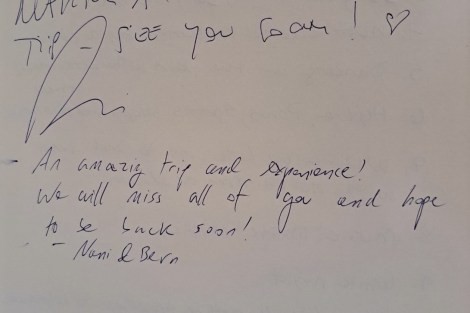 Trip - SEE you soon! ♡
- An amazig trip and experience!
We will miss all of you and hope
to be back soon!
- Nani & Bern